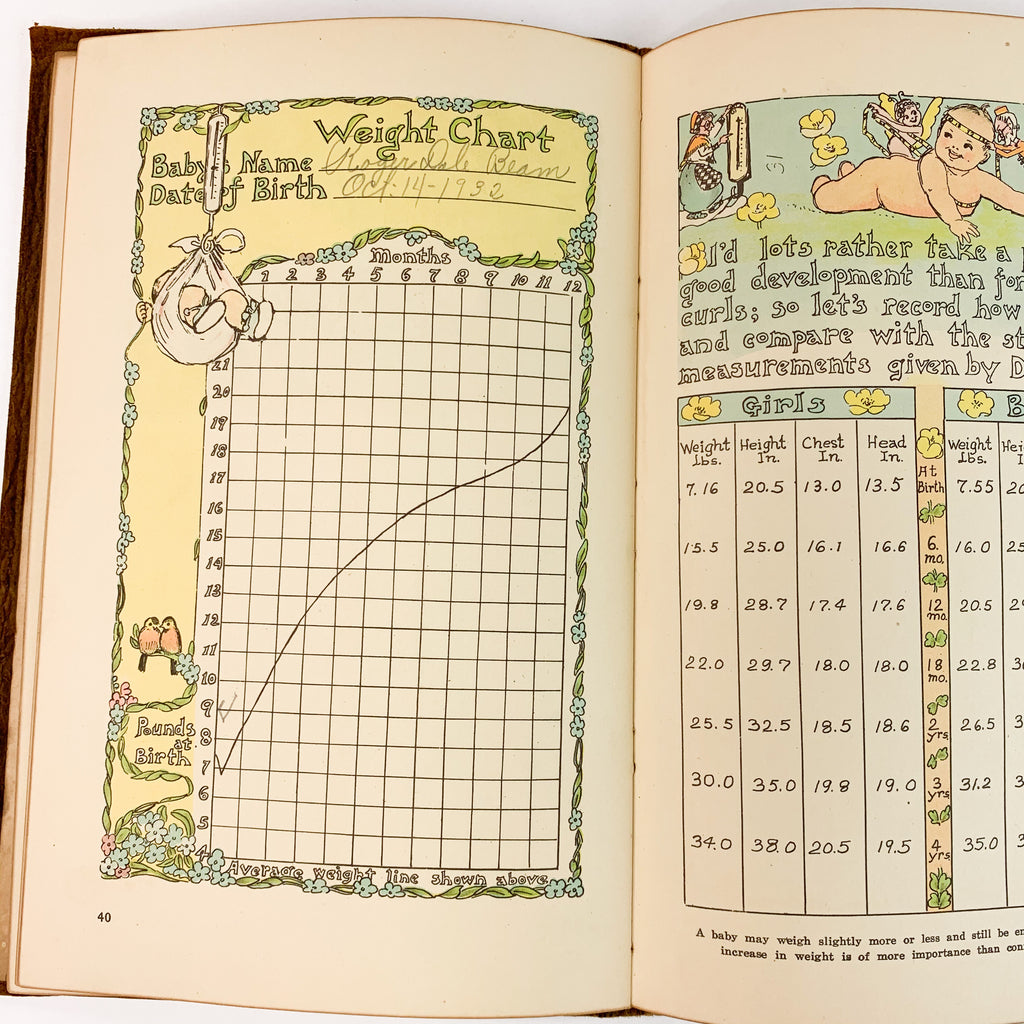 Weight Chart
Baby's Name Roger Dale Beam
Date of Birth Oct-14-1932
Months
1 2 3 4 5 6 7 8 9 10 11 12
21
20
19
18
17
16
15
14
13
12
11
10
9
8
7
6
5
4
Pounds
at
Birth
Average weight line shown above
40
31
I'd lots rather take a
good development than
curls; so let's record how
and compare with the
measurements given by
Girls
Weight Lbs. Height In. Chest In. Head In. At Birth Weight Lbs.
7.16 20.5 13.0 13.5 7.55
15.5 25.0 16.1 16.6 6. mo. 16.0
19.8 28.7 17.4 17.6 12 mo. 20.5
22.0 29.7 18.0 18.0 18 mo. 22.8
25.5 32.5 18.5 18.6 2 yrs. 26.5
30.0 35.0 19.8 19.0 3 yrs. 31.2
34.0 38.0 20.5 19.5 4 yrs. 35.0
A baby may weigh slightly more or less and still be
increase in weight is of more importance than